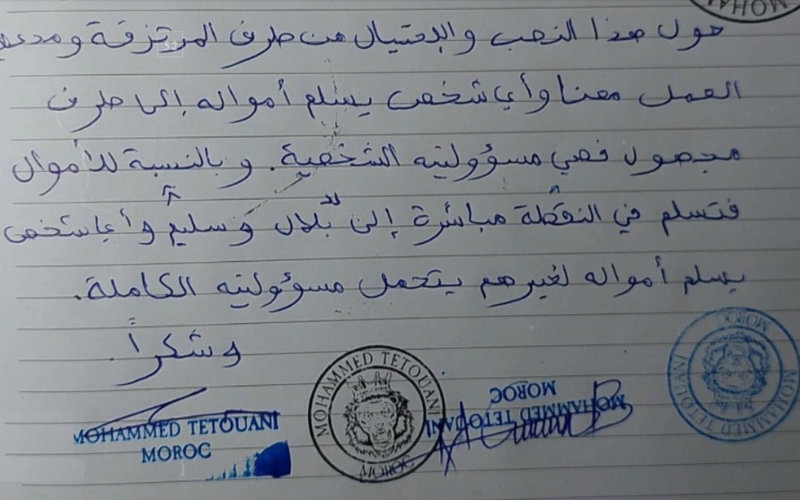 حول هذا النصب والإحتيال من طرف المرتزقة ومدعي
العمل معنا وأي شخص يسلم أمواله إلى طرف
مجهول فهي مسؤوليته الشخصية. وبالنسبة للأموال
فتسلم في النقطة مباشرة إلى بّلال وَسليمٌ وأي شخص
يسلم أمواله لغيرهم يتحمل مسؤوليته الكاملة.
وشكراً.
MOHAMMED TETOUANI
MOROC
MOHAMMED TETOUANI
MOROC
MOHAMMED TETOUANI
MOROC
MOHAMMED TETOUANI
MOROC